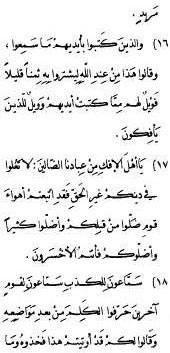 مريد .
(١٦) والذين كتبوا بأيديهم ما سمعوا ،
وقالوا هذا من عند الله ليشتروا به ثمناً قليلاً
فويل لهم ممّا كتبت أيديهم وويل للذين
يأفكون .
(١٧) يا أهل الإفك من عبادنا الضالين : لا تغلوا
في دينكم غير الحق فقد اتبعتم أهواء
قوم ضلّوا من قبلكم وأضلّوا كثيراً
وأضلّوكم فأنتم الأخسرون .
(١٨) سمّاعون للكذب سمّاعون لقوم
آخرين حرّفوا الكلم من بعد مواضعه
وقالوا لكم قد أوتيتم هذا فخذوه وما